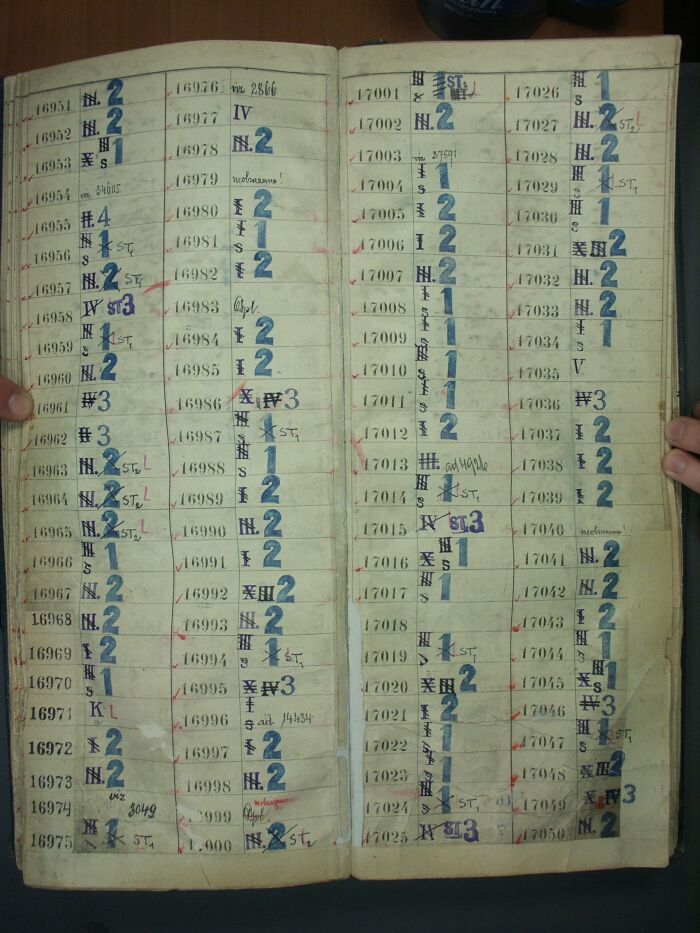 16951 III. 2
16952 III. 2
16953 X III s 1
16954 viz 34605
16955 II. 4
16956 III s 1 ST1
16957 III. 2 ST1
16958 IV ST3
16959 III s 1 ST1
16960 III. 2
16961 IV 3
16962 II 3
16963 III. 2 ST2 L
16964 III. 2 ST2 L
16965 III. 2 ST2 L
16966 III s 1
16967 III. 2
16968 III. 2
16969 I 2
16970 III s 1
16971 K L
16972 I 2
16973 III. 2
16974 viz 3049
16975 III 1 ST1
16976 viz 2866
16977 IV
16978 III. 2
16979 neobsazeno!
16980 I 2
16981 I s 1
16982 I 2
16983
16984 I 2
16985 I 2
16986 X IV 3
16987 III s 1 ST1
16988 III s 1
16989 I 2
16990 III. 2
16991 I 2
16992 X III 2
16993 III. 2
16994 III s 1 ST1
16995 X IV 3
16996 I s ad 14434
16997 I 2
16998 III. 2
999
000 III. 2 ST2
17001 III s 1 ST1 L
17002 III. 2
17003 viz 37591
17004 I s 1
17005 I 2
17006 I 2
17007 III. 2
17008 I s 1
17009 I s 1
17010 III s 1
17011 I s 1
17012 I 2
17013 III. ad 4926
17014 III s 1 ST1
17015 IV ST3
17016 X III s 1
17017 III s 1
17018
17019 III s 1 ST1
17020 X III 2
17021 I 2
17022 I s 1
17023 I s 1
17024 III s 1 ST1
17025 IV ST3
17026 III s 1
17027 III. 2 ST2 L
17028 III. 2
17029 III s 1 ST1
17030 III s 1
17031 X III 2
17032 III. 2
17033 III. 2
17034 I s 1
17035 V
17036 IV 3
17037 I 2
17038 I 2
17039 I 2
17040 neobsazeno!
17041 III. 2
17042 III. 2
17043 I 2
17044 III s 1
17045 X III s 1
17046 IV 3
17047 III s 1 ST1
17048 X III 2
17049 X IV 3
17050 III. 2